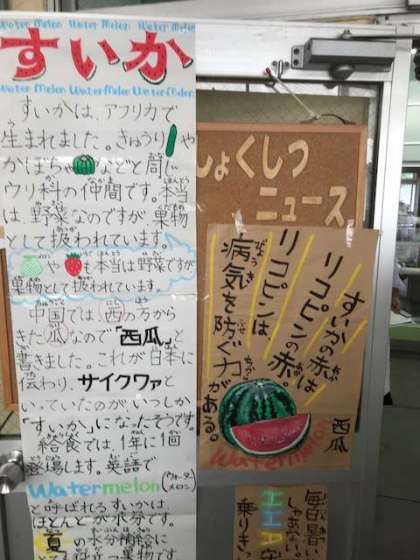 Water Melon Water Melon Water Melon
すいか
Water Melon Water Melon Water Melon
すいかは、アフリカで
生まれました。きゅうりや
かぼちゃなどと同じ
ウリ科の仲間です。本当
は、野菜なのですが果物
として扱われています。
や も本当は野菜ですが
果物として扱われています。
中国では、西の方から
きた瓜なので「西瓜」と
書きました。これが日本に
伝わり、サイクワァと
いっていたのが、いつしか
「すいか」になったそうです。
給食では、1年に1回
登場します。英語で
Watermelon(ウォーターメロン)
と呼ばれるすいかは、
ほとんどが水分です。
夏の水分補給に
役立つ果物です
しょくしつ
ニュース
すいかの赤は
リコピンの赤。
リコピンは
病気を防ぐ力がある。
西瓜
Watermelon
毎日暑
しゃあ
乗りき